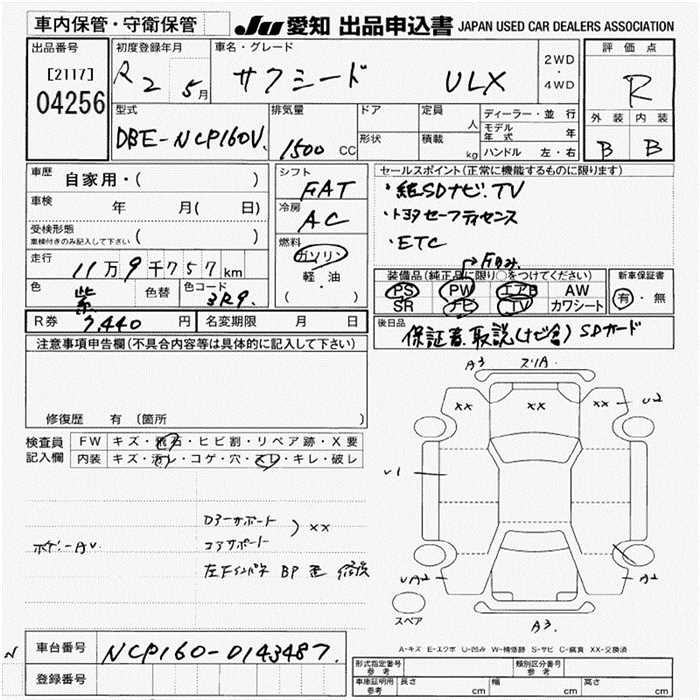 車内保管・守衛保管
JU 愛知 出品申込書 JAPAN USED CAR DEALERS ASSOCIATION
出品番号
[2117]
04256
初度登録年月
R2 5月
車名・グレード
サクシード ULX
2WD
・
4WD
評価点
R
外装 内装
B B
型式
DBE-NCP160V
排気量
1500 CC
ドア
形状
定員 人
積載 kg
ディーラー・並行
モデル年式 年
ハンドル 左・右
車歴 自家用・( )
車検 年 月( 日)
受検形態
車検付きのみ記入して下さい ( )
走行 11万9千757km
色 紫 色替 色コード 3R9
R券 7,440円 名変期限 月 日
シフト
FAT
冷房
AC
燃料
ガソリン
軽・油
( ・ )
セールスポイント(正常に機能するものに限ります)
・純SDナビ.TV
・トヨタセーフティセンス
・ETC
装備品(純正品に限り○をつけてください)
PS PW エアB AW
SR ナビ TV カワシート
新車保証書
有・無
後日品
保証書.取説(ナビ含) SDカード
注意事項申告欄(不具合内容等は具体的に記入して下さい)
修復歴 有 〔箇所 〕
検査員記入欄
FW キズ・飛石・ヒビ割・リペア跡・X要
内装 キズ・汚レ・コゲ・穴・スレ・キレ・破レ
A3
xx xx xx
U2
U1
UA2
A2
A3.
スペア
コアサポート
) xx
A-キズ E-エクボ U-凹み W-補修跡 S-サビ C-腐食 XX-交換済
車台番号 NCP160-0143487
登録番号
形式指定番号 参考
類別区分番号 参考
車庫証明用 参考 長さ cm 幅 cm 高さ cm